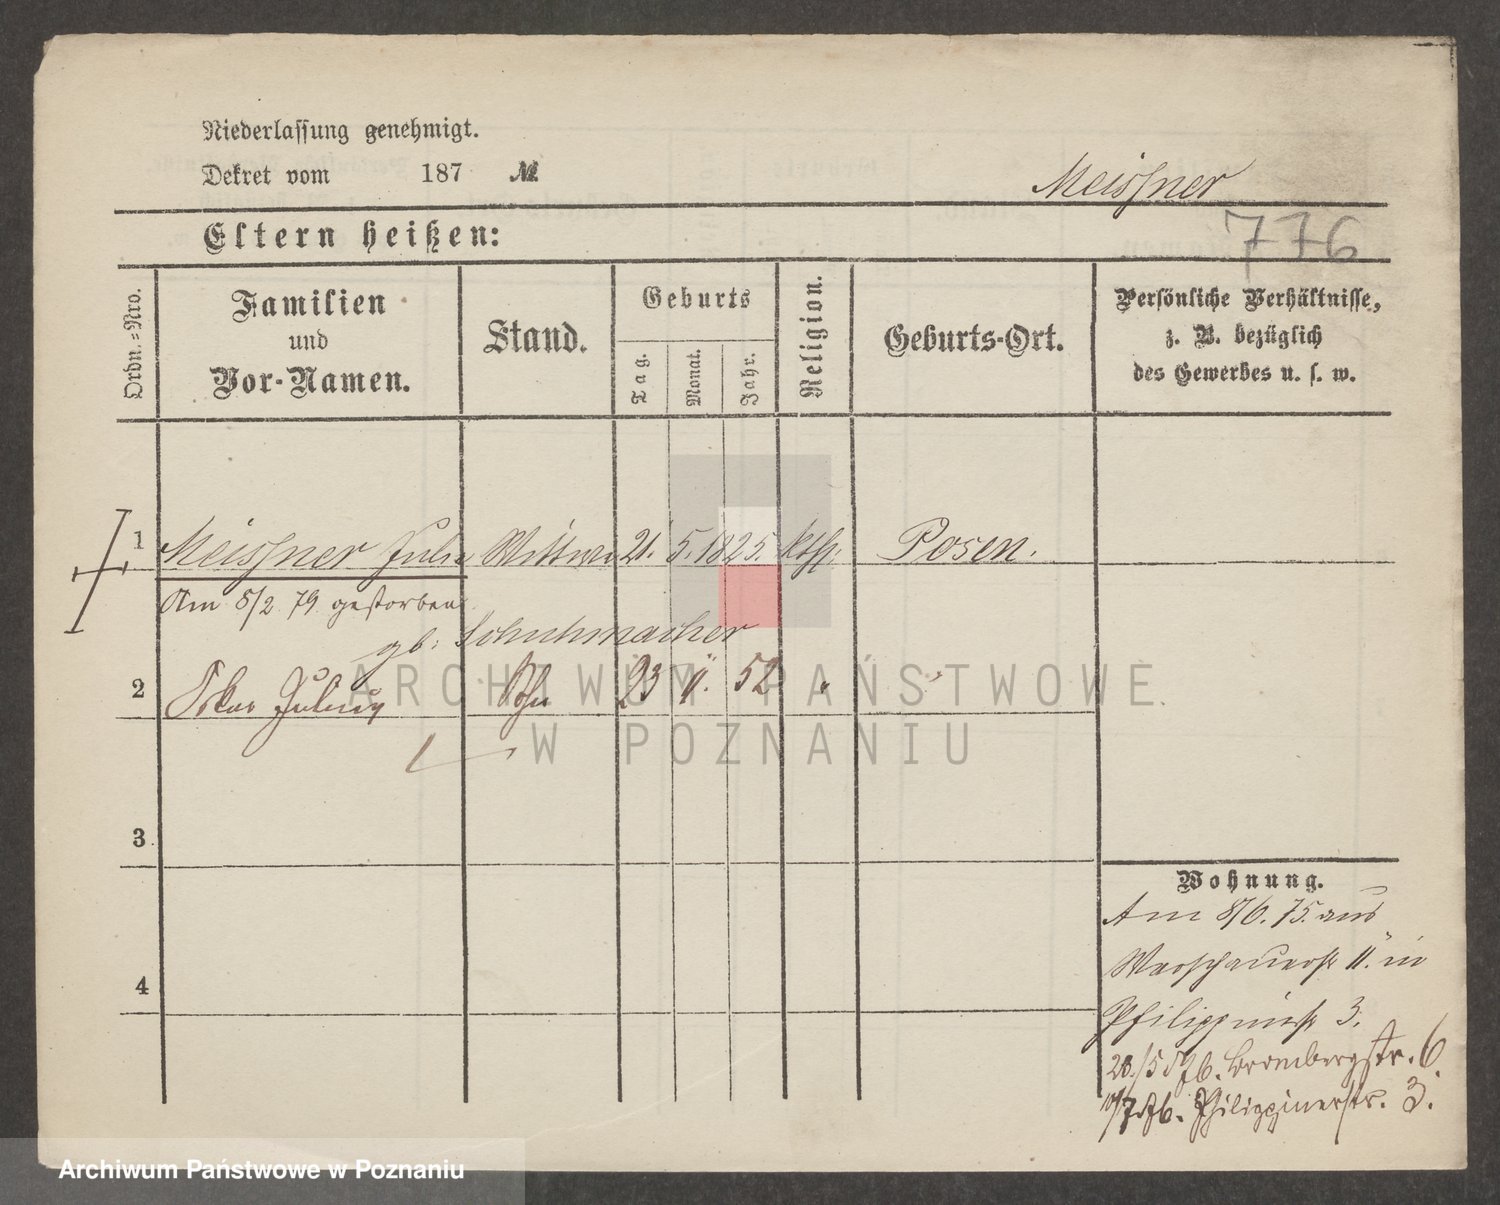 Niederlassung genehmigt.
Dekret vom 187 №
Meissner
776
Eltern heißen:
Ordn.-Nro.
Familien
und
Vor-Namen.
Stand.
Geburts
Tag.
Monat.
Jahr.
Religion.
Geburts-Ort.
Persönliche Verhältnisse,
z. B. bezüglich
des Gewerbes u. s. w.
1 Meissner Julie Wittwe 21. 5. 1825. kth. Posen.
Am 8/2 79 gestorben
gb. Schuhmacher
2 Oskar Julius Sohn 23 11. 52 "
3
4
Wohnung.
Am 8/6. 75. aus
Warschauerstr 11. in
Philippinstr 3.
Brombergstr. 6.
10/7 76. Philippinerstr. 3.
ARCHIWUM PAŃSTWOWE
W POZNANIU
Archiwum Państwowe w Poznaniu